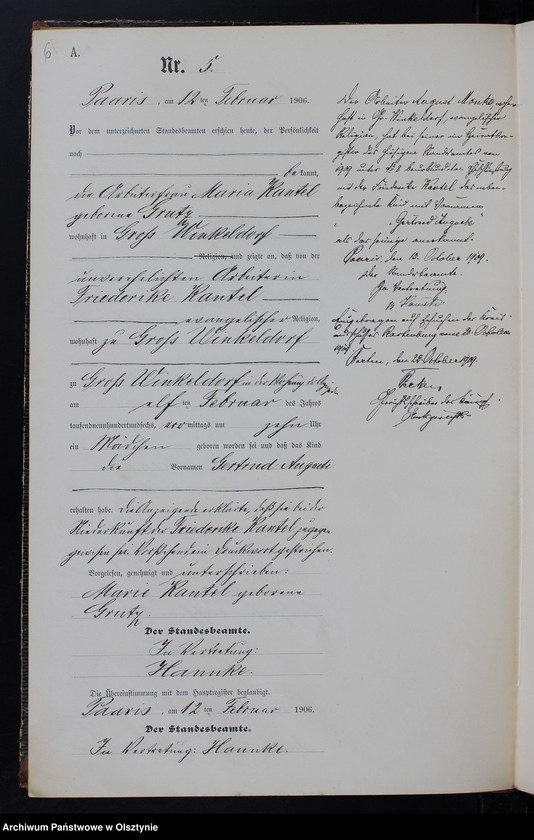 6
A.
Nr. 5.
Paaris, am 12 ten Februar 1906.
Vor dem unterzeichneten Standesbeamten erschien heute, der Persönlichkeit
nach
bekannt,
die Arbeiterfrau Maria Kantel
geborene Grutz
wohnhaft in Gross Winkeldorf
Religion, und zeigte an, daß von der
unverehelichten Arbeiterin
Friederike Kantel
evangelischer Religion,
wohnhaft zu Gross Winkeldorf
zu Gross Winkeldorf in der Wohnung der
am elf ten Februar des Jahres
tausendneunhundertundsechs, vor mittags um zehn Uhr
ein Mädchen geboren worden sei und daß das Kind
die Vornamen Gertrud Auguste
erhalten habe. Die Anzeigende erklärte, daß sie bei der
Niederkunft der Friederike Kantel zugegen
gewesen sei. Vorstehend ein Druckwort gestrichen.
Vorgelesen, genehmigt und unterschrieben:
Marie Kantel geborene
Grutz.
Der Standesbeamte.
In Vertretung:
Hannke.
Die Übereinstimmung mit dem Hauptregister beglaubigt.
Paaris, am 12 ten Februar 1906.
Der Standesbeamte.
In Vertretung: Hannke.
Der Arbeiter August Monke, wohn-
haft in Gr. Winkeldorf, evangelischer
Religion, hat bei seiner im Heiratsre-
gister des hiesigen Standesamtes von
1909 unter № 8 beurkundeten Eheschließung
mit der Friederike Kantel das neben-
bezeichnete Kind mit Vornamen
"Gertrud Auguste"
als das seinige anerkannt.
Paaris, den 13. October 1909.
Der Standesbeamte
In Vertretung
Hannke
Eingetragen auf Ersuchen des Kreis-
ausschusses Rastenburg vom 20. October
1909
den 28. October 1909.
Gerichtsschreiber des Königl.
Amtsgerichts
Archiwum Państwowe w Olsztynie